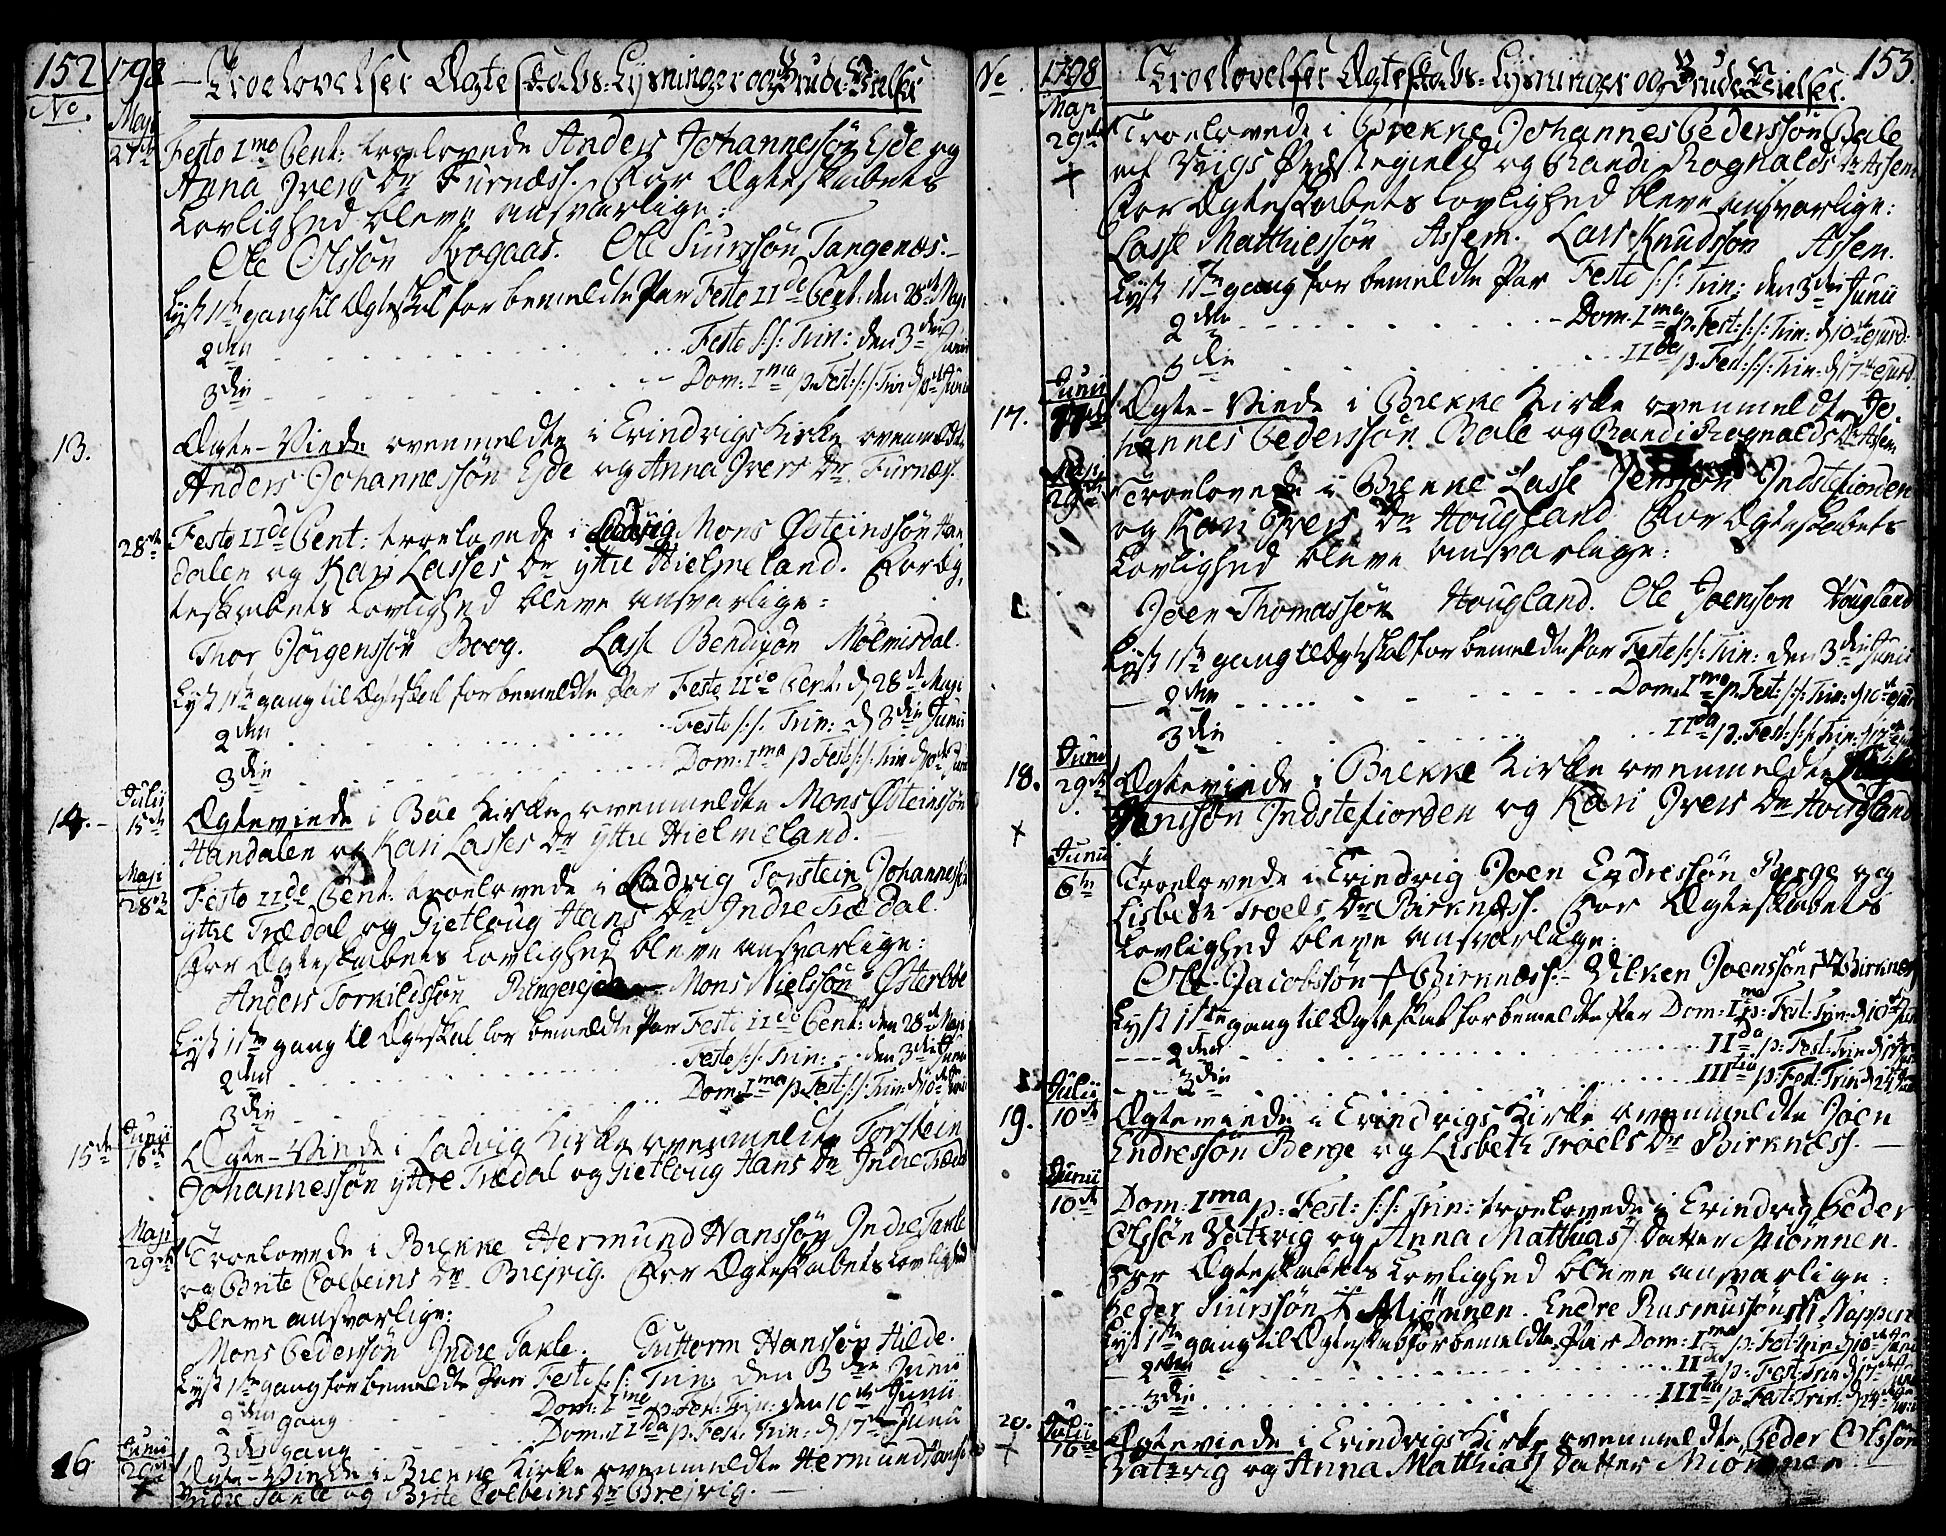 152 1798 Troelovelser Ægteskabs-Lysninger og Brude-Vielser
No. Maji
27de Festo Imo Pent: troelovede Anders Johannessön Eide og
Anna Ivers Dr Furnæss. For Ægteskabets
Lovlighed bleve ansvarlige:
Ole Olssön Rogaas. Ole Siurssön Tangenæs.
Lyst 1ste gang til Ægteskab for bemeldte Par Festo IIdo Pent: den 28de Maji
2den Festo S:S: Trin: den 3die Junii
3die Dom: Ima p. Fest: S:S: Trin d 10de Junii
13. Ægte-Viede ovenmeldte i Evindvigs Kirke ovenmeldte
Anders Johannessön Eide og Anna Ivers Dr Furnæss.
28de Festo IIdo Pent: troelovede i Ladvig Mons Østeinssön Han
dalen og Kari Lasses Dr yttre Hielmeland. For Æg
teskabets Lovlighed bleve ansvarlige:
Thor Jörgenssön Boog. Lasse Bendixön Mölmisdal.
Lyst 1ste gang til Ægteskab for bemeldte Par Festo IIdo Pent: d 28de Maji
2den Festo S:S: Trin: d 3die Junii
3die Dom: Ima p Fest S:S: Trin d 10de Junii
14. Julii 15de Ægteviede i Böe Kirke ovenmeldte Mons Østeinssön
Handalen og Kari Lasses Dr yttre Hielmeland.
Maji 28de Festo IIdo Pent: troelovede i Ladvig Torstein Johannessön
yttre Trædal og Gietloug Hans Dr Indre Trædal.
For Ægteskabets Lovlighed bleve ansvarlige:
Anders Torkildssön Mons Nielssön Østerböe
Lyst 1ste gang til Ægteskab for bemeldte Par Festo IIdo Pent: den 28de Maji
2den Festo S:S: Trin: den 3die Junii
3die Dom: Ima p. Fest: S:S: Trin d 10de Junii
15de Junii 16de Ægte-Viede i Ladvig Kirke ovenmeldte Torstein
Johannessön yttre Trædal og Gietloug Hans Dr Indre Trædal
Maji 29de Troelovede i Brekke Hermund Hanssön Indre Takle
og Brite Colbeins Dr Brejvig. For Ægteskabets Lovlighed
bleve ansvarlige:
Mons Pederssön Indre Takle. Guttorm Hanssön Hilde.
Lyst 1ste gang for bemeldte Par Festo S:S: Trin: den 3die Junii
2den gang Dom: Ima p: Fest: Trin: den 10de Junii
3die gang Dom: IIda p. Fest: Trin: d 17de Junii
16 Junii Ægte-Viede i Brekke Kirke ovenmeldte Hermund Hanssön
Indre Takle og Brite Colbeins Dr Brejvig.
No 1798 Troelovelser Ægteskabs-Lysninger og Brude-Vielser. 153.
Maji
29de Troelovede i Brekke Johannes Pederssön Bale
af Viigs Præstegield og Randi Rognalds Dr Assem
For Ægteskabets Lovlighed bleve ansvarlige:
Lasse Matthiessön Assem. Lars Knudssön Assem.
Lyst 1ste gang for bemeldte Par Festo S:S: Trin: den 3die Junii
2den Dom. Ima p. Fest: S:S: Trin: d 10de ejusd:
3die IIda p. Fest: S:S: Trin. d 17de ejusd.
17. Junii Ægte-Viede i Brekke Kirke ovenmeldte Jo
hannes Pederssön Bale og Randi Rognalds Dr Assem
Maji 29de Troelovede i Brekke Lasse Jenssön Indstefiorden
og Kari Ivers Dr Hougland. For Ægteskabets
Lovlighed bleve ansvarlige:
Joen Thomassön Hougland. Ole Joenssön Hougland
Lyst 1ste gang til Ægteskab for bemeldte Par Festo S:S: Trin: den 3die Junii
2den Dom: Ima p. Fest: S:S: Trin: d 10de ejusd
3die IIda p. Fest: S:S: Trin: d 17de ejusd
18. Junii 29de Ægteviede i Brekke Kirke ovenmeldte Lasse
Jenssön Indstefiorden og Kari Ivers Dr Hougland
Junii 6te Troelovede i Evindvig Joen Endressön Berge og
Lisbeth Troels Dr Birknæss. For Ægteskabets
Lovlighed bleve ansvarlige:
Ole Jacobssön Birknæss. Vilken Joenssön Birknæss
Lyst 1ste gang til Ægteskab for bemeldte Par Dom: Ima p: Fest: Trin: d 10de Junii
2den IIda p: Fest: Trin d 17de
3die IIItia p. Fest: Trin d 24de
19. Julii 10de Ægteviede i Evindvigs Kirke ovenmeldte Joen
Endressön Berge og Lisbeth Troels Dr Birknæss.
Junii 10de Dom: Ima p: Fest: S:S: Trin: troelovede i Evindvig Peder
Olssön Vatzvig og Anna Matthias Datter Miömnen.
For Ægteskabets Lovlighed bleve ansvarlige:
Peder Siurssön Miömnen. Endre Rasmussön Nappen
Lyst 1ste gang til Ægteskab for bemeldte Par Dom: Ima p: Fest: Trin: d 10de Junii
2den IIda p: Fest: Trin d 17de
3die IIItia p. Fest: Trin: d 24de
20. Julii 16de Ægteviede i Evindvigs Kirke ovenmeldte Peder Olssön
Vatzvig og Anna Matthias Datter Miömnen